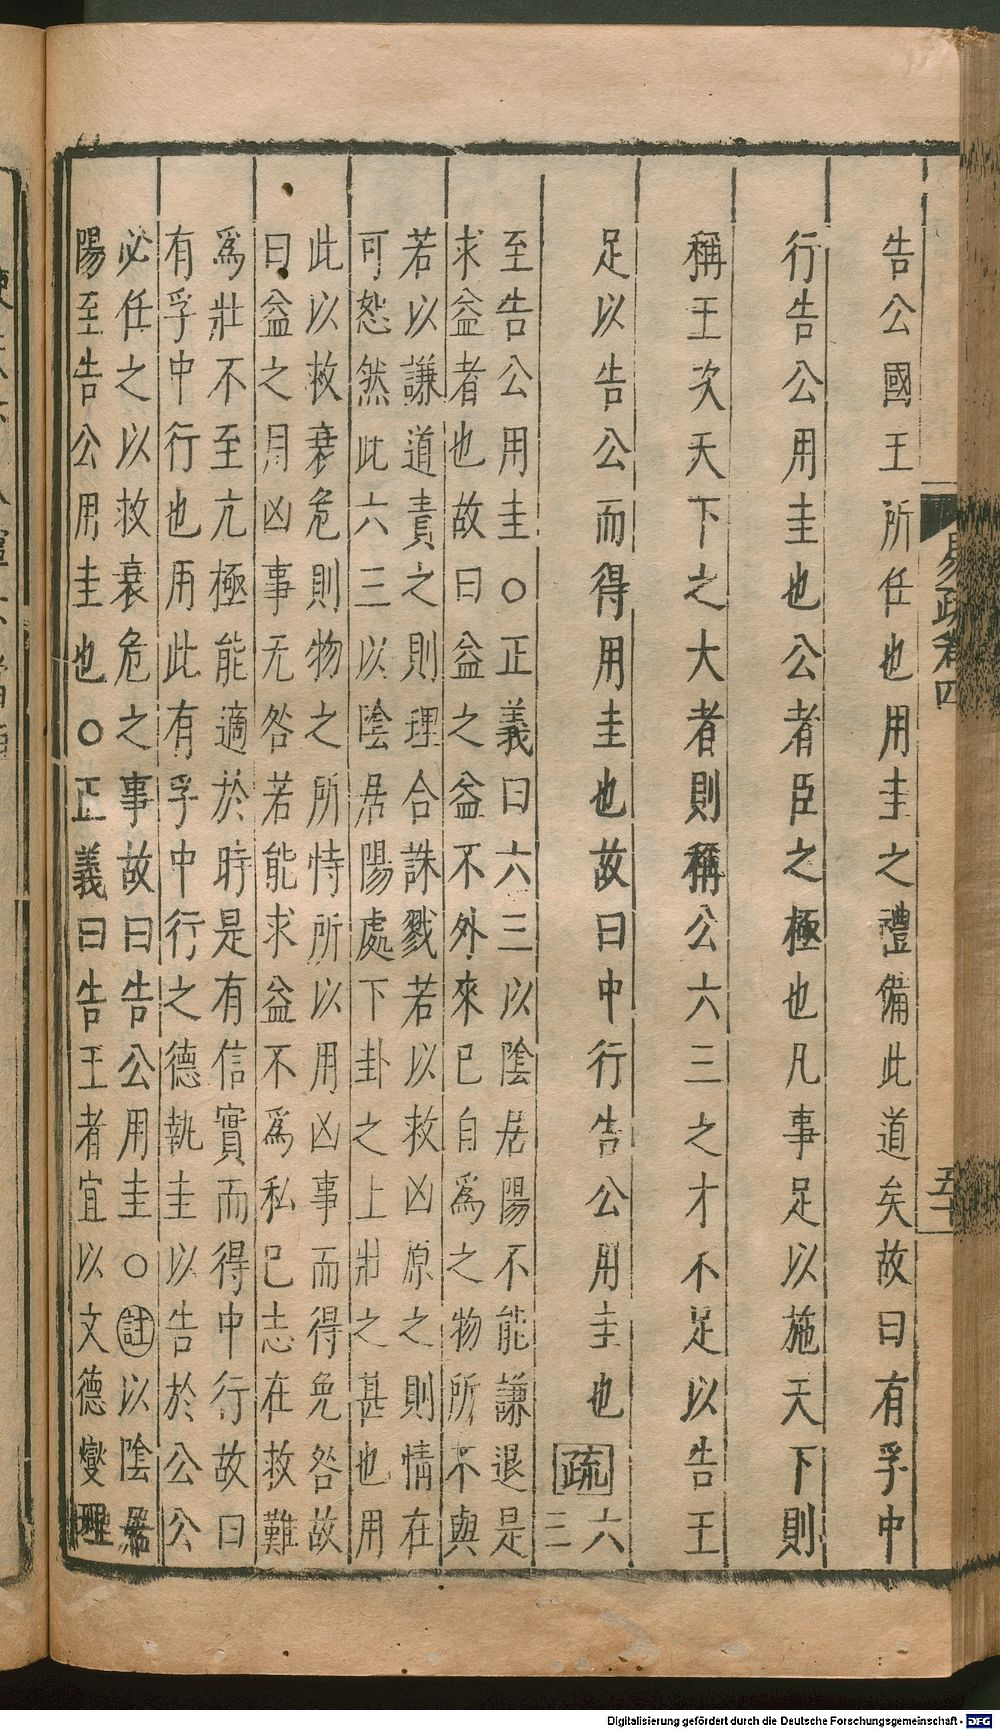 告公國王所任也用圭之禮備此道矣故曰有孚中
行告公用圭也公者臣之極也凡事足以施天下則
稱王次天下之大者則稱公六三之才不足以告王
足以告公而得用圭也故曰中行告公用圭也疏六三
至告公用圭○正義曰六三以陰居陽不能謙退是
求益者也故曰益之益不外來已自為之物所不與
若以謙道責之則理合誅戮若以救凶原之則情在
可恕然此六三以陰居陽處下卦之上壯之甚也用
此以救衰危則物之所恃所以用凶事而得免咎故
曰益之用凶事无咎若能求益不為私已志在救難
為壯不至亢極能適於時是有信實而得中行故曰
有孚中行也用此有孚中行之德執圭以告於公公
必任之以救衰危之事故曰告公用圭○註以陰居
陽至告公用圭也○正義曰告王者宜以文德燮理
易疏卷四
五十
Digitalisierung gefördert durch die Deutsche Forschungsgemeinschaft - DFG